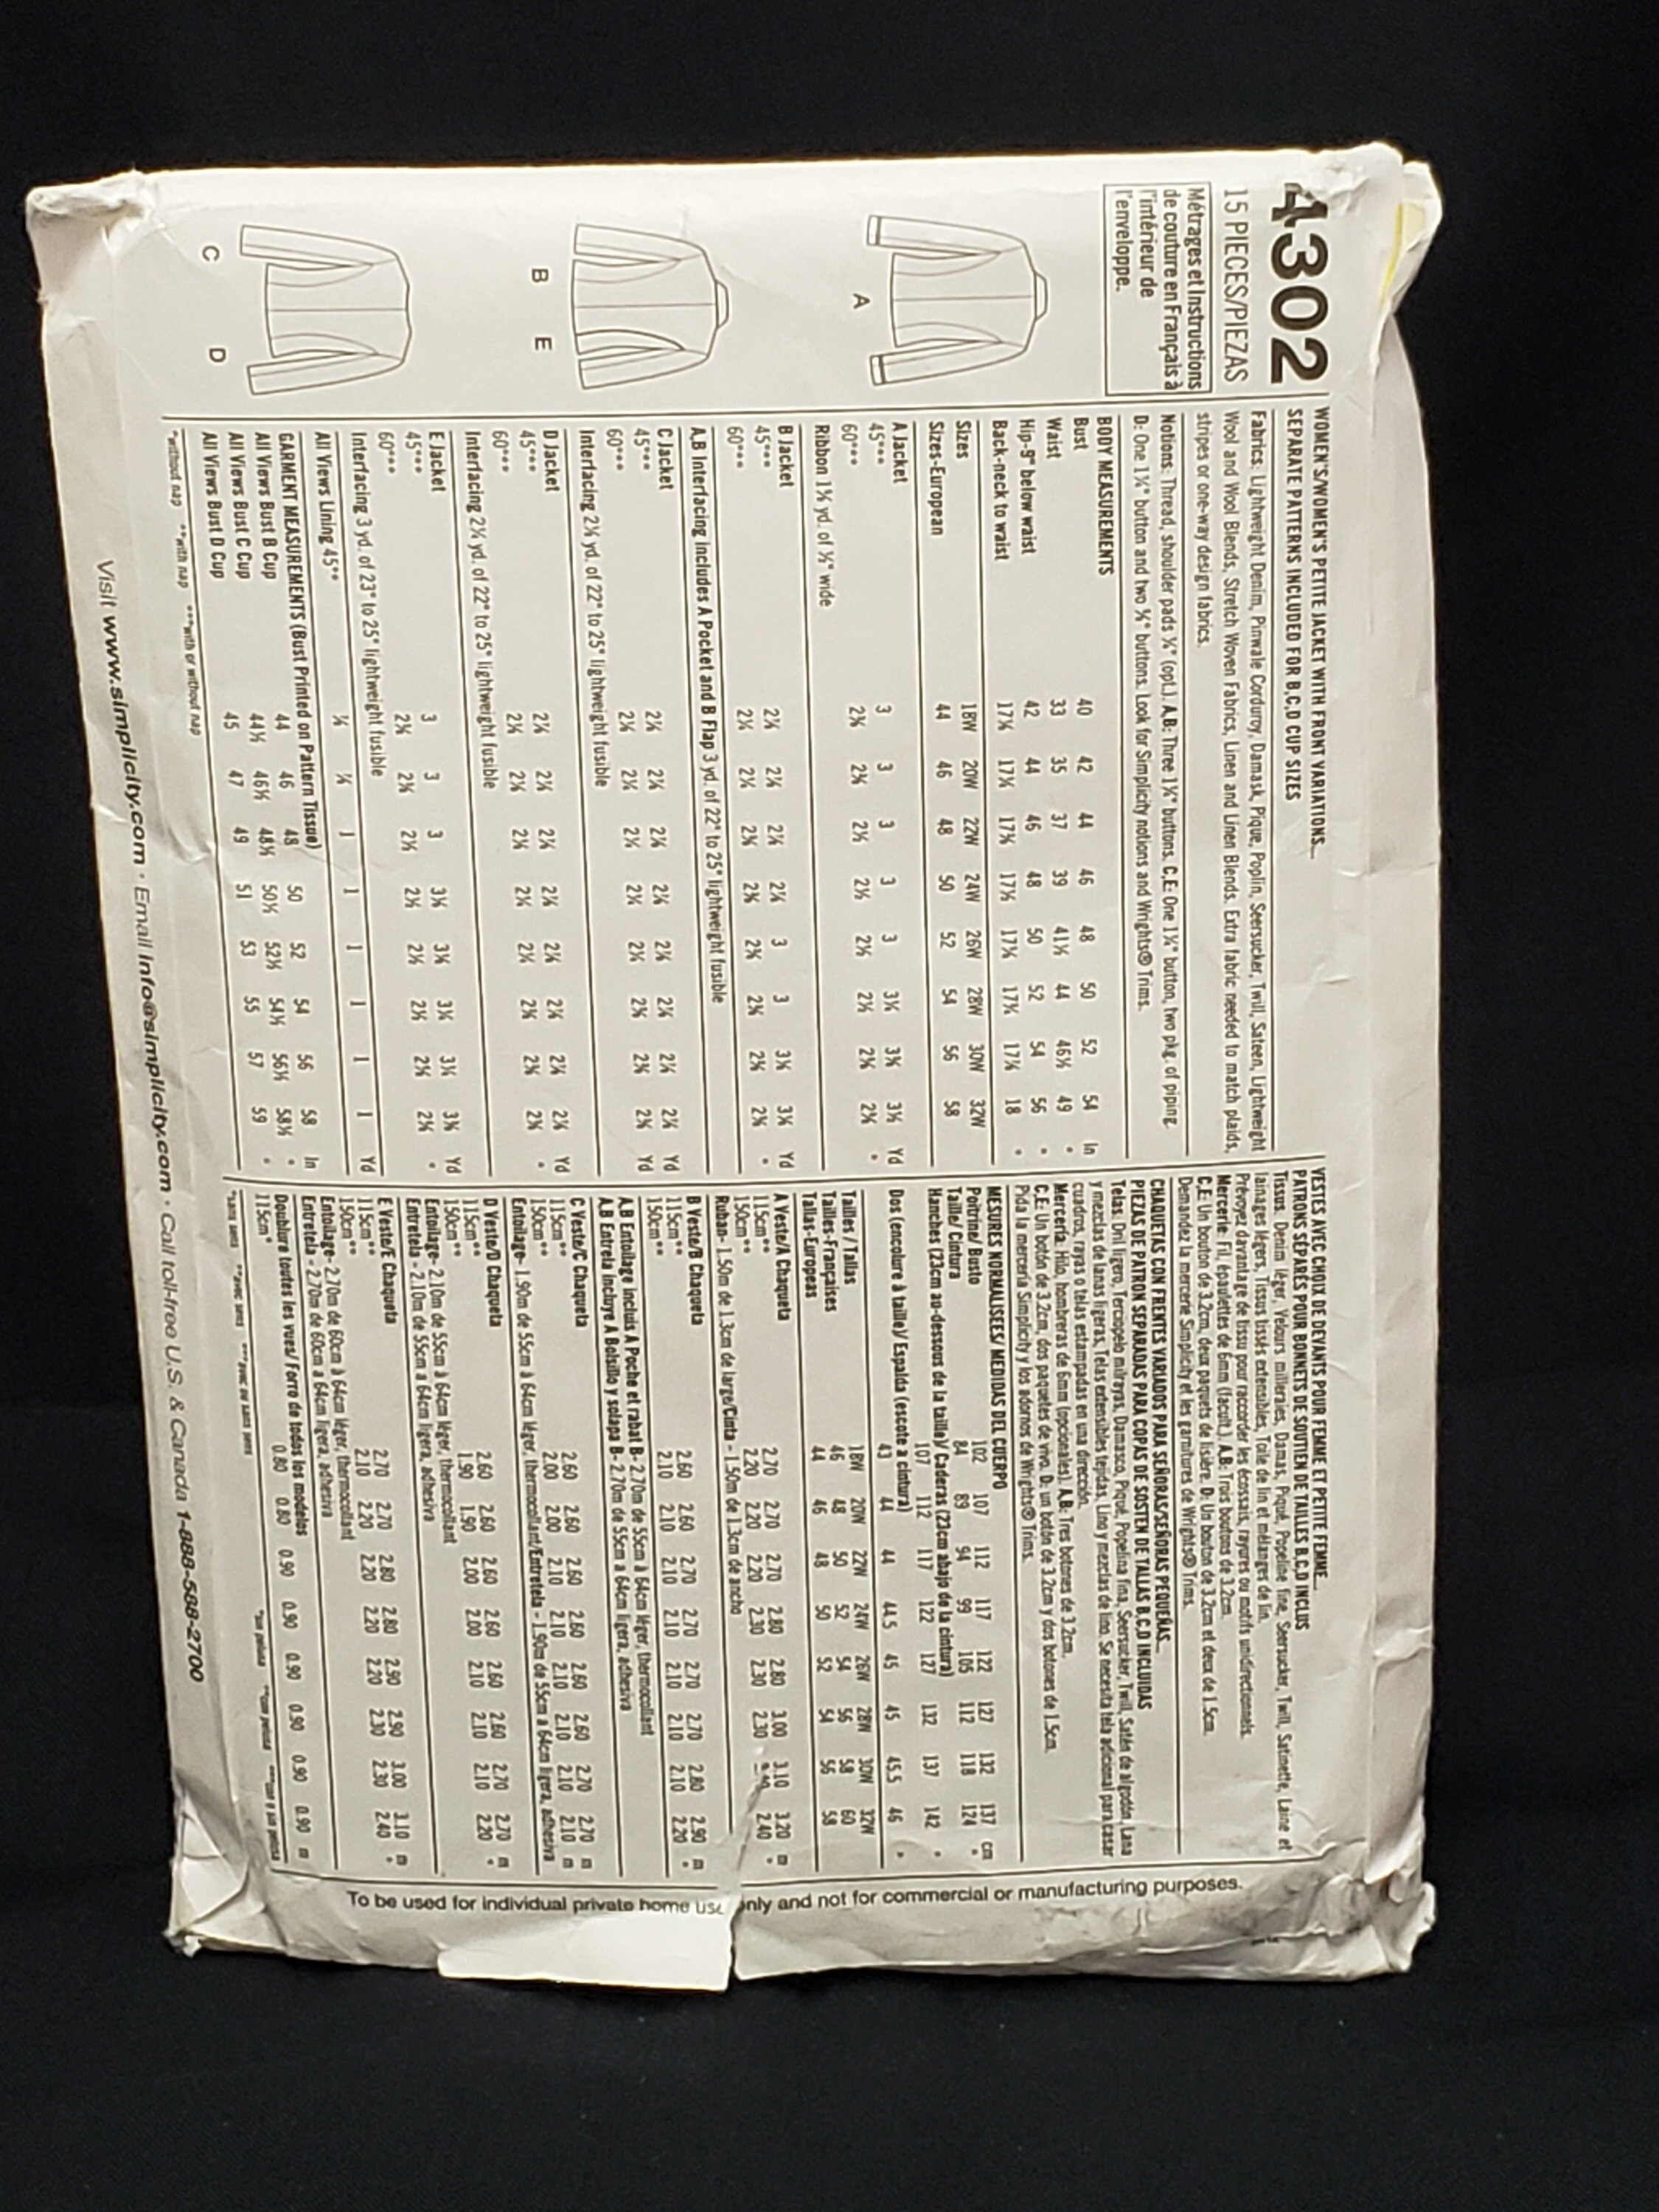 4302
15 PIECES/PIEZAS
Métrages et Instructions
de couture en Français à
l'intérieur de
l'enveloppe.
A
B E
C D
WOMEN'S/WOMEN'S PETITE JACKET WITH FRONT VARIATIONS...
SEPARATE PATTERNS INCLUDED FOR B,C,D CUP SIZES
Fabrics: Lightweight Denim, Pinwale Corduroy, Damask, Pique, Poplin, Seersucker, Twill, Sateen, Lightweight
Wool and Wool Blends, Stretch Woven Fabrics, Linen and Linen Blends. Extra fabric needed to match plaids,
stripes or one-way design fabrics.
Notions: Thread, shoulder pads ¼" (opt.). A,B: Three 1¼" buttons. C,E: One 1¼" button, two pkg. of piping.
D: One 1¼" button and two buttons. Look for Simplicity notions and Wrights® Trims.
BODY MEASUREMENTS
Bust 40 42 44 46 48 50 52 54 In
Waist 33 35 37 39 41½ 44 46½ 49 "
Hip-9" below waist 42 44 46 48 50 52 54 56 "
Back-neck to waist 18 "
Sizes 18W 20W 22W 24W 26W 28W 30W 32W
Sizes-European 44 46 48 50 52 54 56 58
A Jacket
45"*** 3 3 3 3 3 Yd
60"*** "
Ribbon wide
B Jacket
45"*** 3 3 Yd
60"*** "
A,B Interfacing includes A Pocket and B Flap 3 yd. of 22" to 25" lightweight fusible
C Jacket Yd
45"*** Yd
60"***
Interfacing yd. of 22" to 25" lightweight fusible
D Jacket Yd
45"***
60"*** "
Interfacing yd. of 22" to 25" lightweight fusible
E Jacket Yd
45"*** 3 3 3
60"*** "
Interfacing 3 yd. of 23" to 25" lightweight fusible
All Views Lining 45"** 1 1 1 1 1 1 Yd
GARMENT MEASUREMENTS (Bust Printed on Pattern Tissue)
All Views Bust B Cup 44 46 48 50 52 54 56 58 In
All Views Bust C Cup 44½ 46½ 48½ 50½ 52½ 54½ 56½ 58½ "
All Views Bust D Cup 45 47 49 51 53 55 57 59 "
*without nap **with nap ***with or without nap
VESTES AVEC CHOIX DE DEVANTS POUR FEMME ET PETITE FEMME...
PATRONS SÉPARÉS POUR BONNETS DE SOUTIEN DE TAILLES B,C,D INCLUS
Tissus: Denim léger, Velours milleraies, Damas, Piqué, Popeline fine, Seersucker, Twill, Satinette, Laine et
lainages légers, Tissus tissés extensibles, Toile de lin et mélanges de lin.
Prévoyez davantage de tissu pour raccorder les écossais, rayures ou motifs unidirectionnels.
Mercerie: Fil, épaulettes de 6mm (facult.). A,B: Trois boutons de 3.2cm.
C,E: Un bouton de 3.2cm, deux paquets de lisière. D: Un bouton de 3.2cm et deux de 1.5cm.
Demandez la mercerie Simplicity et les garnitures de Wrights® Trims.
CHAQUETAS CON FRENTES VARIADOS PARA SEÑORAS/SEÑORAS PEQUEÑAS...
PIEZAS DE PATRON SEPARADAS PARA COPAS DE SOSTEN DE TALLAS B,C,D INCLUIDAS
Telas: Dril ligero, Terciopelo milrayas, Damasco, Piqué, Popelina fina, Seersucker, Twill, Satén de algodón, Lana
y mezclas de lanas ligeras, Telas extensibles tejidas, Lino y mezclas de lino. Se necesita tela adicional para casar
cuadros, rayas o telas estampadas en una dirección.
Mercería: Hilo, hombreras de 6mm (opcionales). A,B: Tres botones de 3.2cm.
C,E: Un botón de 3.2cm, dos paquetes de vivo. D: un botón de 3.2cm y dos botones de 1.5cm.
Pida la mercería Simplicity y los adornos de Wrights® Trims.
MESURES NORMALISEES/ MEDIDAS DEL CUERPO
Poitrine/ Busto 102 107 112 117 122 127 132 137 cm
Taille/ Cintura 84 89 94 99 105 112 118 124 "
Hanches (23cm au-dessous de la taille)/ Caderas (23cm abajo de la cintura)
107 112 117 122 127 132 137 142 "
Dos (encolure à taille)/ Espalda (escote a cintura)
43 44 44 44.5 45 45 45.5 46 "
Tailles / Tallas 18W 20W 22W 24W 26W 28W 30W 32W
Tailles-Françaises 46 48 50 52 54 56 58 60
Tallas-Europeas 44 46 48 50 52 54 56 58
A Veste/A Chaqueta
115cm** 2.70 2.70 2.70 2.80 2.80 3.00 3.10 3.20 m
150cm** 2.20 2.20 2.20 2.30 2.30 2.30 2.40 "
Ruban- 1.50m de 1.3cm de large/Cinta - 1.50m de 1.3cm de ancho
B Veste/B Chaqueta
115cm** 2.60 2.60 2.70 2.70 2.70 2.70 2.80 2.90 m
150cm** 2.10 2.10 2.10 2.10 2.10 2.10 2.10 2.20 "
A,B Entoilage incluis A Poche et rabat B- 2.70m de 55cm à 64cm léger, thermocollant
A,B Entrela incluye A Bolsillo y solapa B- 2.70m de 55cm a 64cm ligera, adhesiva
C Veste/C Chaqueta
115cm** 2.60 2.60 2.60 2.60 2.60 2.60 2.70 2.70 m
150cm** 2.00 2.00 2.10 2.10 2.10 2.10 2.10 2.10 m
Entoilage- 1.90m de 55cm à 64cm léger, thermocollant/Entretela - 1.90m de 55cm a 64cm ligera, adhesiva
D Veste/D Chaqueta
115cm** 2.60 2.60 2.60 2.60 2.60 2.60 2.70 2.70 m
150cm** 1.90 1.90 2.00 2.00 2.10 2.10 2.10 2.20 "
Entoilage- 2.10m de 55cm à 64cm léger, thermocollant
Entretela - 2.10m de 55cm a 64cm ligera, adhesiva
E Veste/E Chaqueta
115cm** 2.70 2.70 2.80 2.80 2.90 2.90 3.00 3.10 m
150cm** 2.10 2.20 2.20 2.20 2.20 2.30 2.30 2.40 "
Entoilage- 2.70m de 60cm à 64cm léger, thermocollant
Entretela - 2.70m de 60cm a 64cm ligera, adhesiva
Doublure toutes les vues/ Forro de todos los modelos
115cm* 0.80 0.80 0.90 0.90 0.90 0.90 0.90 0.90 m
*sans sens **avec sens ***avec ou sans sens
To be used for individual private home use only and not for commercial or manufacturing purposes.
Visit www.simplicity.com • Email info@simplicity.com • Call toll-free U.S. & Canada 1-888-588-2700